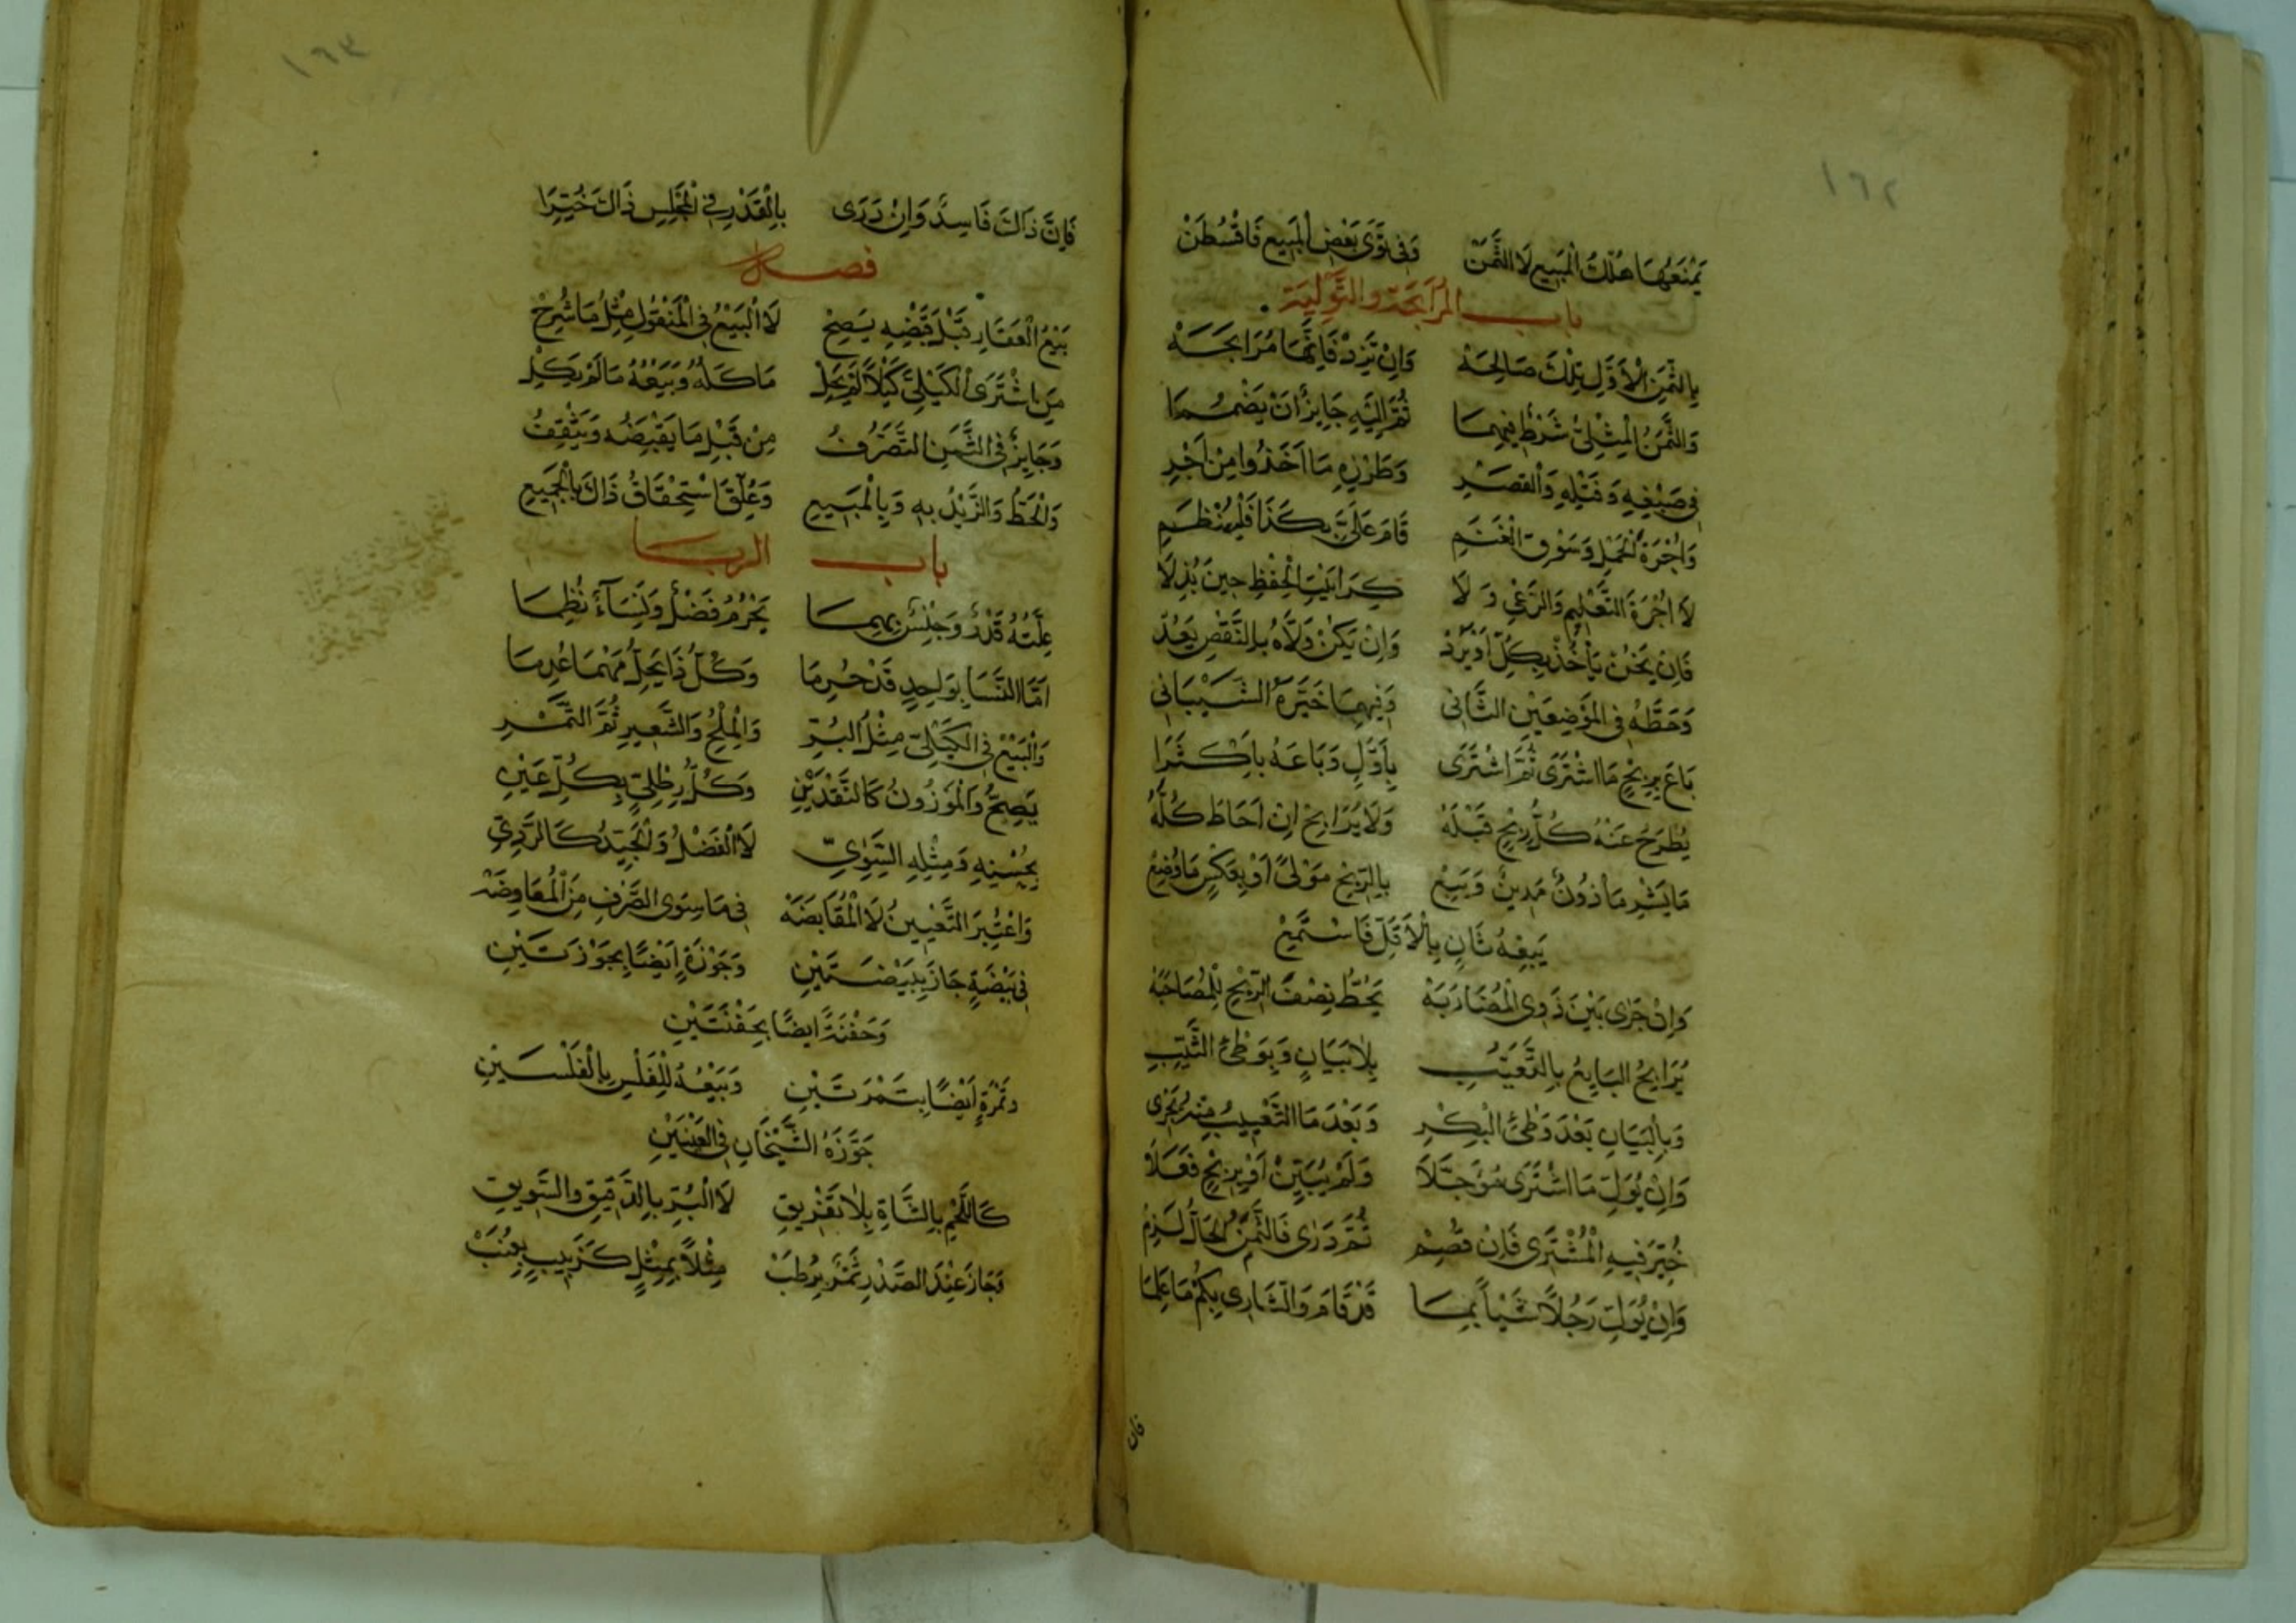 ١٦٢
يَمْنَعُهَا هُلْكُ الْمَبِيعِ لَا الثَّمَنْ وَفِي تَوَى بَعْضِ الْمَبِيعِ فَاقْسُطَنْ
باب المرابحة والتولية
بِالثَّمَنِ الْأَوَّلِ تِلْكَ صَالِحَهْ وَإِنْ تَزِدْ فَإِنَّهَا مُرَابَحَهْ
وَالثَّمَنُ الْمِثْلِيُّ شَرْطٌ فِيهِمَا ثُمَّ إِلَيْهِ جَايِزٌ أَنْ يَضْمُمَا
فِي صَبْغِهِ وَفَتْلِهِ وَالْقَصْرِ وَطَرْزِهِ مَا أَخَذُوا مِنْ أَجْرِ
وَأُجْرَةُ الْحَمْلِ وَسَوْقِ الْغَنَمِ قَامَ عَلَيَّ بِكَذَا فَلْيَنْظِمِ
لَا أُجْرَةَ التَّعْلِيمِ وَالرَّعْيِ وَلَا كِرَا بَيْتِ الْحِفْظِ حِينَ بُذِلَا
فَإِنْ يَخُنْ يَأْخُذْ بِكُلٍّ أَوْ يَرُدْ وَإِنْ يَكُنْ وَلَّاهُ بِالنَّقْصِ يَعُدْ
وَحَطَّهُ فِي الْمَوْضِعَيْنِ الثَّانِي وَفِيهِمَا خَيَّرَهُ الشَّيْبَانِي
بَاعَ بِرِبْحٍ مَا اشْتَرَى ثُمَّ اشْتَرَى بِأَوَّلٍ وَبَاعَهُ بِأَكْثَرَا
يُطْرَحُ عَنْهُ كُلُّ رِبْحٍ قَبْلَهُ وَلَا يُرَابِحْ إِنْ أَحَاطَ كُلَّهُ
مَا يَشْرِ مَأْذُونٌ مَدِينٌ وَيَبِعْ بِالرِّبْحِ مَوْلًى أَوْ بِعَكْسٍ مَا وُضِعْ
يَبِعْهُ ثَانٍ بِالْأَقَلِّ فَاسْتَمِعْ
وَإِنْ جَرَى بَيْنَ ذَوِي الْمُضَارَبَهْ يَحُطُّ نِصْفَ الرِّبْحِ لِلْمُصَاحَبَهْ
يُرَابِحُ الْبَايِعُ بِالتَّعَيُّبِ بِلَا بَيَانٍ وَبِوَطْئِ الثَّيِّبِ
وَبِالْبَيَانِ بَعْدَ وَطْئِ الْبِكْرِ وَبَعْدَ مَا التَّعْيِيبُ مِنْهُ يَجْرِي
وَإِنْ يُوَلِّ مَا اشْتَرَى مُؤَجَّلَا وَلَمْ يُبَيِّنْ أَوْ بِرِبْحٍ فَعَلَا
خُيِّرَ فِيهِ الْمُشْتَرِي فَإِنْ فُصِمْ ثُمَّ دَرَى فَالثَّمَنُ الْحَالُّ لَزِمْ
وَإِنْ يُوَلِّ رَجُلًا شَيْأً بِمَا قَدْ قَامَ وَالشَّارِي بِكَمْ مَا عَلِمَا
فان
١٦٣
فَإِنَّ ذَاكَ فَاسِدٌ وَإِنْ دَرَى بِالْقَدْرِ فِي الْمَجْلِسِ ذَاكَ خُيِّرَا
فصل
بَيْعُ الْعَقَارِ قَبْلَ قَبْضِهِ يَصِحْ لَا الْبَيْعُ فِي الْمَنْقُولِ مِثْلُ مَا شُرِحْ
مَنِ اشْتَرَى الْكَيْلِيَّ كَيْلًا لَمْ يَحِلْ مَأْكَلُهُ وَبَيْعُهُ مَا لَمْ يَكِلْ
وَجَايِزٌ فِي الثَّمَنِ التَّصَرُّفُ مِنْ قَبْلِ مَا يَقْبِضُهُ وَيَثْقِفُ
وَالْحَطُّ وَالزَّيْدُ بِهِ وَبِالْمَبِيعِ وَعُلِّقَ اسْتِحْقَاقُ ذَاكَ بِالْجَمِيعِ
باب الربا
عِلَّتُهُ قَدْرٌ وَجِنْسٌ بِهِمَا يَحْرُمُ فَضْلٌ وَنَسَاءٌ نُظِمَا
أَمَّا النَّسَا بِوَاحِدٍ قَدْ حُرِمَا وَكُلُّ ذَا يَحِلُّ مَهْمَا عُدِمَا
وَالْبَيْعُ فِي الْكَيْلِيِّ مِثْلُ الْبُرِّ وَالْمِلْحِ وَالشَّعِيرِ ثُمَّ التَّمْرِ
يَصِحُّ وَالْمَوْزُونُ كَالنَّقْدَيْنِ وَكُلُّ رِطْلِيٍّ بِكُلِّ عَيْنِ
بِجِنْسِهِ وَمِثْلِهِ السَّوِيِّ لَا الْفَضْلُ وَالْجَيِّدُ كَالرَّدِيِّ
وَاعْتُبِرَ التَّعْيِينُ لَا الْمُقَابَضَهْ فِي مَا سِوَى الصَّرْفِ مِنَ الْمُعَاوَضَهْ
فِي بَيْضَةٍ جَازَ بِبَيْضَتَيْنِ وَجَوْزَةٍ أَيْضًا بِجَوْزَتَيْنِ
وَحَفْنَةً أَيْضًا بِحَفْنَتَيْنِ
وَتَمْرَةٍ أَيْضًا بِتَمْرَتَيْنِ وَبَيْعُهُ لِلْفَلْسِ بِالْفَلْسَيْنِ
جَوَّزَهُ الشَّيْخَانِ فِي الْعَيْنَيْنِ
كَاللَّحْمِ بِالشَّاةِ بِلَا تَفْرِيقِ لَا الْبُرِّ بِالدَّقِيقِ وَالسَّوِيقِ
وَجَازَ عِنْدَ الصَّدْرِ تَمْرٌ بِرُطَبْ مِثْلًا بِمِثْلٍ كَزَبِيبٍ بِعِنَبْ